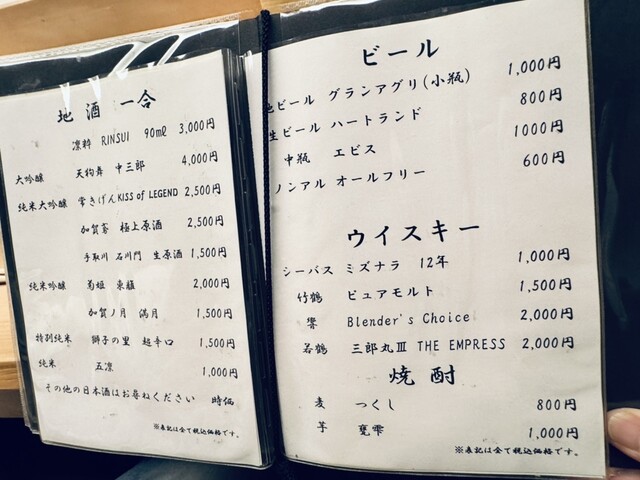 地酒 一合
凛粋 RINSUI 90ml 3,000円
大吟醸 天狗舞 中三郎 4,000円
純米大吟醸 常きげん KISS of LEGEND 2,500円
加賀鳶 極上原酒 2,500円
手取川 石川門 生原酒 1,500円
純米吟醸 菊姫 2,000円
加賀ノ月 満月 1,500円
特別純米 獅子の里 超辛口 1,500円
純米 五凛 1,000円
その他の日本酒はお尋ねください 時価
※表記は全て税込価格です。
ビール
地ビール グランアグリ(小瓶) 1,000円
生ビール ハートランド 800円
中瓶 エビス 1000円
ノンアル オールフリー 600円
ウイスキー
シーバス ミズナラ 12年 1,000円
竹鶴 ピュアモルト 1,500円
響 Blender's Choice 2,000円
若鶴 三郎丸Ⅲ THE EMPRESS 2,000円
焼酎
麦 つくし 800円
芋 甕雫 1,000円
※表記は全て税込価格です。